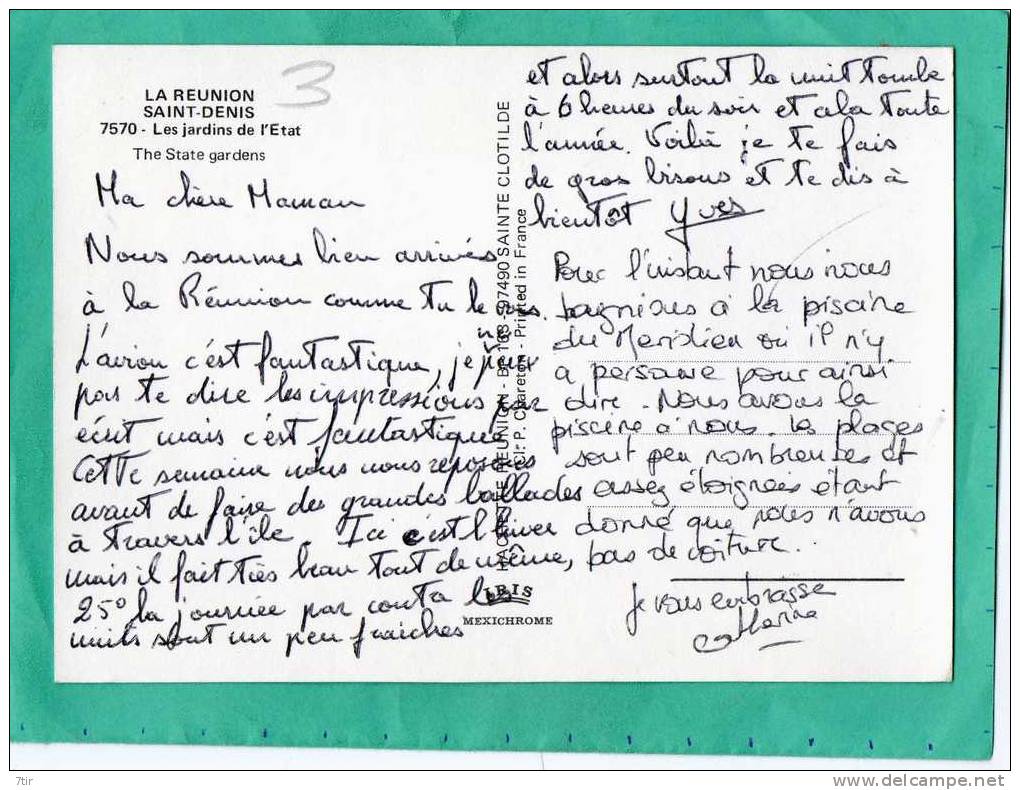 LA REUNION
SAINT-DENIS
7570 - Les jardins de l'Etat
The State gardens
3
Ma chère Maman
Nous sommes bien arrivés
à la Réunion comme tu le vois.
L'avion c'est fantastique, je ne peux
pas te dire les impressions par
écrit mais c'est fantastique
Cette semaine nous nous reposons
avant de faire des grandes ballades
à travers l'île. Ici c'est l'hiver
mais il fait très beau tout de même,
25° la journée par contre les
nuits sont un peu fraîches
et alors surtout la nuit tombe
à 6 heures du soir et cela toute
l'année. Voilà je te fais
de gros bisous et te dis à
bientôt Yves
Pour l'instant nous nous
baignions à la piscine
du Meridien où il n'y
a personne pour ainsi
dire. Nous avons la
piscine à nous. Les plages
sont peu nombreuses et
assez éloignées étant
donné que nous n'avons
pas de voiture.
Je vous embrasse
Catherine
REUNION - BP 168 - 97490 SAINTE CLOTILDE
Cl. P. Chareton - Printed in France
IRIS
MEXICHROME
7tir
www.delcampe.net